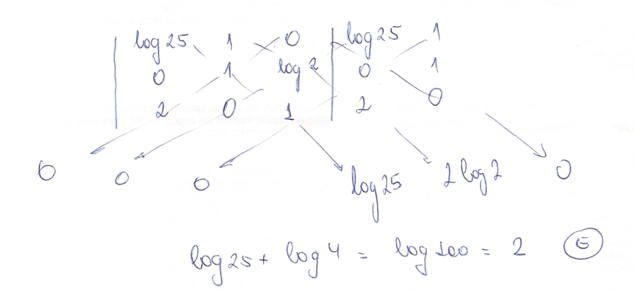 log 25 1 0 log 25 1
0 1 log 2 0 1
2 0 1 2 0
0 0 0 log 25 2 log 2 0
log 25 + log 4 = log 100 = 2 E